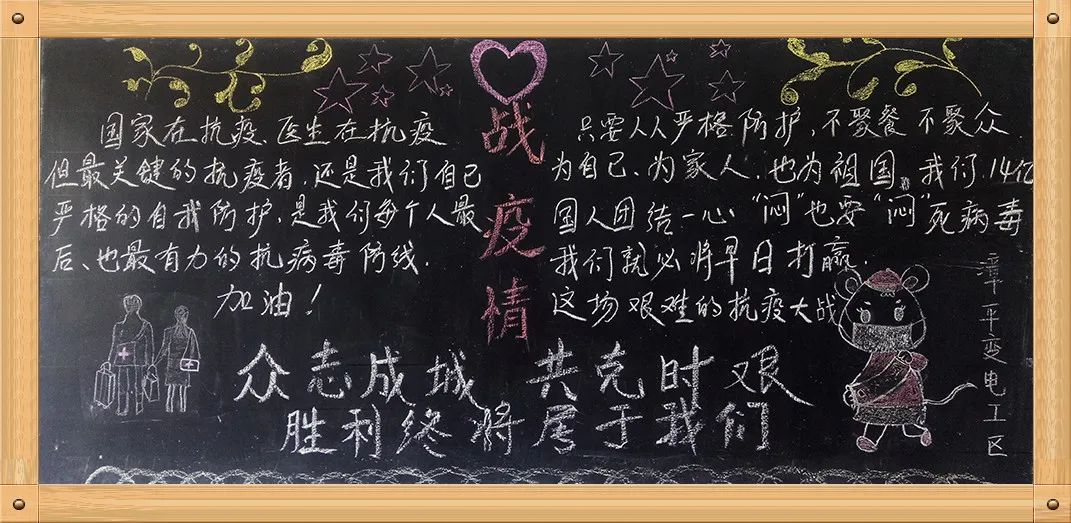 战疫情
国家在抗疫、医生在抗疫
但最关键的抗疫者,还是我们自己
严格的自我防护,是我们每个人最
后、也最有力的抗病毒防线.
加油!
只要人人严格防护,不聚餐 不聚众.
为自己、为家人,也为祖国。我们14亿
国人团结一心“闷”也要“闷”死病毒
我们就必将早日打赢
这场艰难的抗疫大战
众志成城 共克时艰
胜利终将属于我们
漳平变电工区